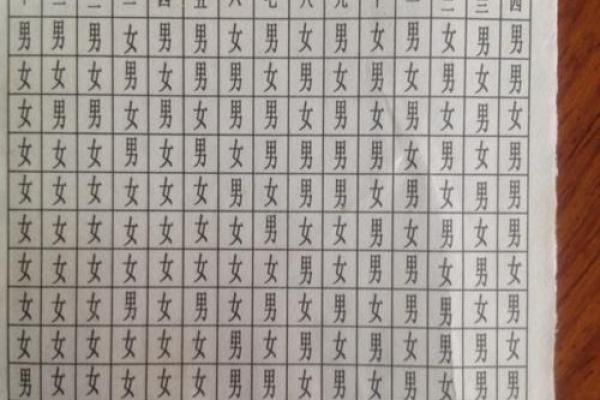 十 二 三 三 四 五 六 七 八 九 十 一 二 三 四
男 男 男 女 男 男 女 男 女 男 女 男 女 男 男
女 女 女 男 女 男 男 女 男 女 女 男 男 女 男
女 男 男 女 男 女 男 男 女 男 女 男 女 男 女
女 女 女 男 女 男 女 男 男 男 男 女 男 女 男
女 女 女 女 女 女 男 女 男 男 女 男 女 男 男
女 女 女 女 女 女 女 男 女 女 男 女 男 女 男
女 女 女 女 女 女 女 女 男 女 男 男 女 男 女
女 女 女 男 女 男 女 男 女 男 女 男 男 女 男
女 女 女 女 女 女 男 女 男 女 男 女 男 男 女
男 女 女 女 女 女 男 男 女 男 女 男 女 男 男